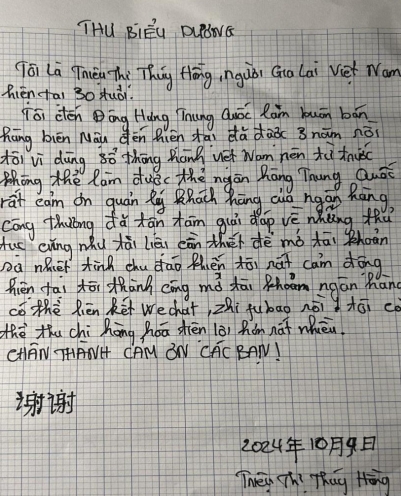 THƯ BIỂU DƯƠNG
Tôi Là Triệu Thị Thúy Hồng, người Gia Lai Việt Nam
hiện tại 30 tuổi.
Tôi đến Đông Hưng Trung Quốc làm buôn bán
hàng biên Mậu đến hiện tại đã được 3 năm rồi
tôi vì dùng sổ thông hành Việt Nam nên từ trước
không thể làm được thẻ ngân hàng Trung Quốc
rất cảm ơn quản lý khách hàng của ngân hàng
Công Thương đã tận tâm giải đáp về những thủ
tục cũng như tài liệu cần thiết để mở tài khoản
và nhiệt tình chu đáo khiến tôi rất cảm động
hiện tại tôi thành công mở tài khoản ngân hàng
có thể liên kết wechat, zhi fu bao rồi! tôi có
thể thu chi hàng hóa tiện lợi hơn rất nhiều.
CHÂN THÀNH CẢM ƠN CÁC BẠN!
谢谢
2024年10月9日
Triệu Thị Thúy Hồng